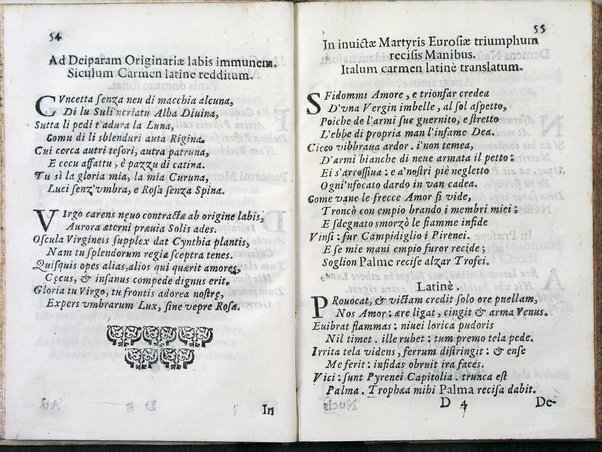 54
Ad Deiparam Originariæ labis immunem.
Siculum Carmen latine redditum.
CVncetta senza neu di macchia alcuna,
Di lu Suli ncriatu Alba Diuina,
Sutta li pedi t'adura la Luna,
Comu di li sblenduri auta Rigina.
Cui cerca autri tesori, autra patruna,
E cecu affattu, è pazzu di catina.
Tu sì la gloria mia, la mia Curuna,
Luci senz'vmbra, e Rosa senza Spina.
VIrgo carens neuo contractæ ab origine labis,
Aurora æterni præuia Solis ades.
Oscula Virgineis supplex dat Cynthia plantis,
Nam tu splendorum regia sceptra tenes.
Quisquis opes alias, alios qui quærit amores,
Cęcus, & insanus compede dignus erit.
Gloria tu Virgo, tu frontis adorea nostrę,
Expers vmbrarum Lux, sine vepre Rosa.
In
55
In inuictæ Martyris Eurosiæ triumphum
recisis Manibus.
Italum carmen latinè translatum.
SFidommi Amore, e trionfar credea
D'vna Vergin imbelle, al sol aspetto,
Poiche de l'armi sue guernito, e stretto
L'ebbe di propria man l'infame Dea.
Cieco vibbraua ardor. i'non temea,
D'armi bianche di neue armata il petto:
Ei s'arrossiua: e a'nostri piè negletto
Ogni'nfocato dardo in van cadea.
Come vane le frecce Amor si vide,
Troncò con empio brando i membri miei:
E sdegnato smorzò le fiamme infide
Vinsi: fur Campidiglio i Pirenei.
E se mie mani empio furor recide;
Soglion Palme recise alzar Trofei.
Latinè.
PRouocat, & victam credit solo ore puellam,
Nos Amor: are ligat, cingit & arma Venus.
Euibrat flammas: niuei lorica pudoris
Nil timet. ille rubet: tum premo tela pede.
Irrita tela videns, ferrum distringit: & ense
Me ferit: infidas obruit ira faces.
Vici: sunt Pyrenei Capitolia. trunca est
Palma. Trophæa mihi Palma recisa dabit.
D 4 De-